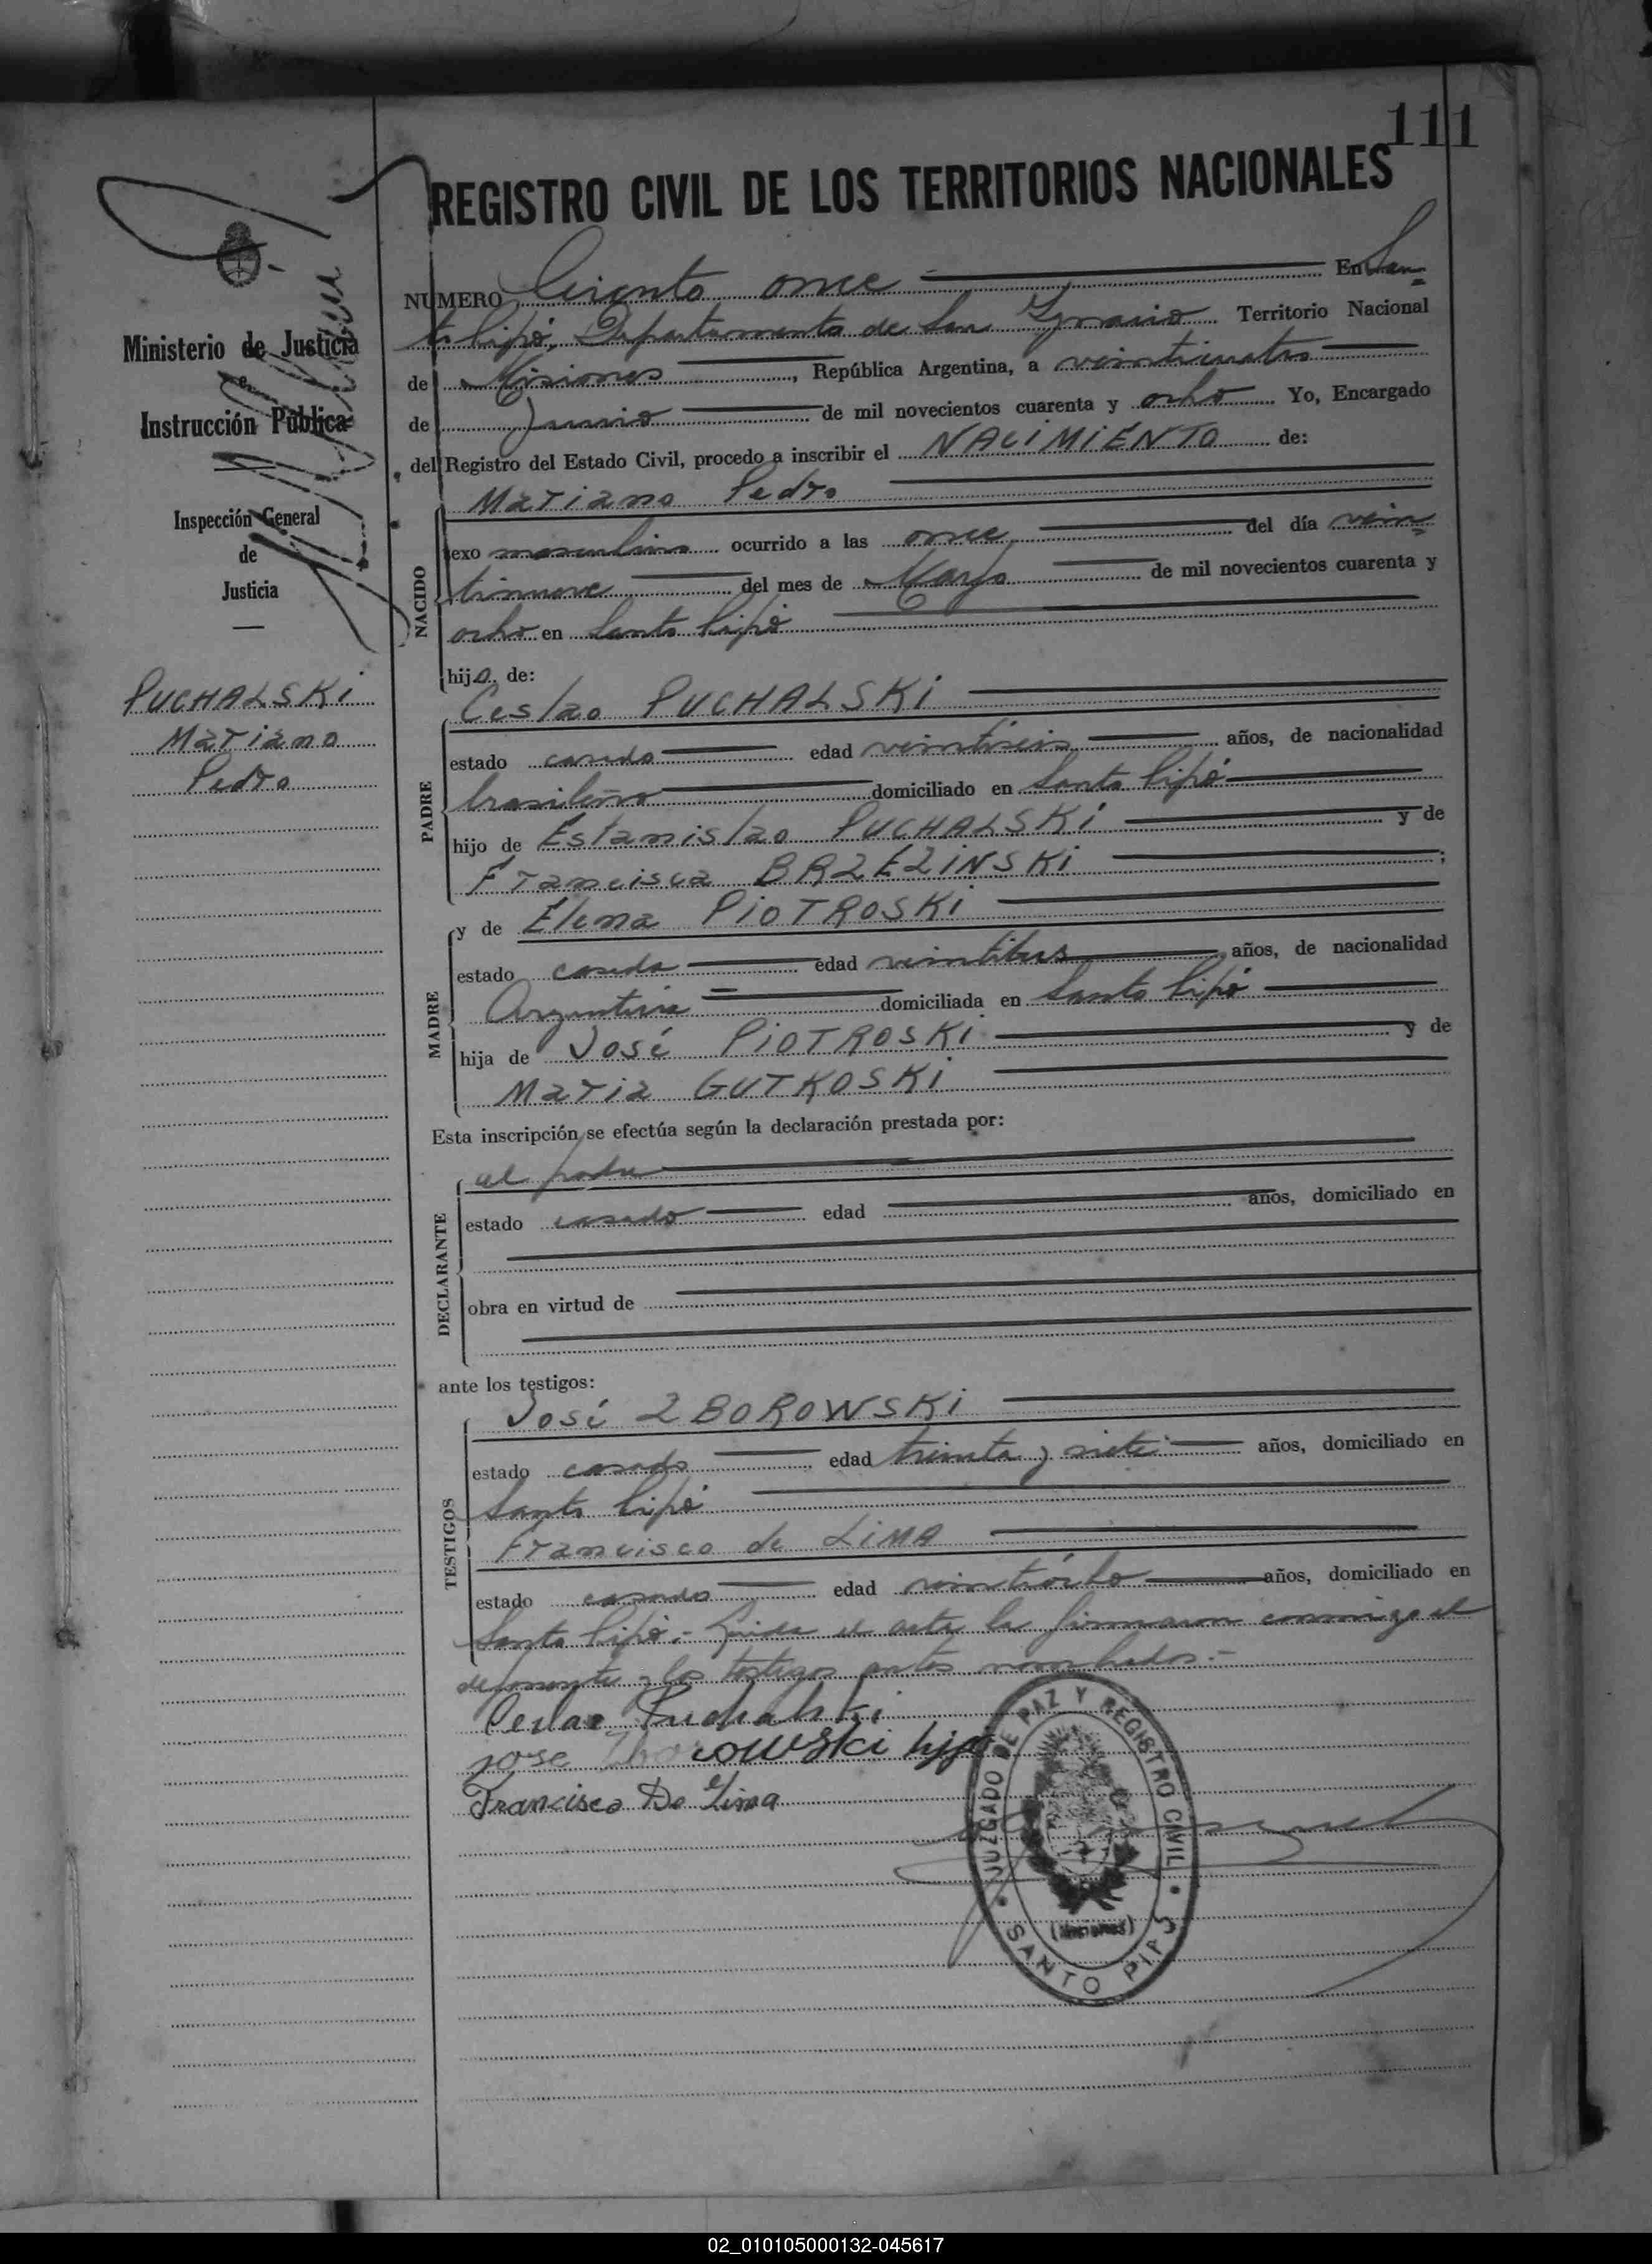 111
REGISTRO CIVIL DE LOS TERRITORIOS NACIONALES
Ministerio de Justicia
e
Instrucción Pública
Inspección General
de
Justicia
PUCHALSKi
Mariano
Pedro
NUMERO Ciento once En San-
to Pipó, Departamento de San Ignacio Territorio Nacional
de Misiones, República Argentina, a veinticuatro
de Junio de mil novecientos cuarenta y ocho Yo, Encargado
del Registro del Estado Civil, procedo a inscribir el NACiMiENTO de:
NACIDO
Mariano Pedro
sexo masculino ocurrido a las once del día vein=
tinueve del mes de Marzo de mil novecientos cuarenta y
ocho en Santo Pipó
hijo de:
PADRE
Ceslao PUCHALSKi
estado casado edad veintiseis años, de nacionalidad
brasileño domiciliado en Santo Pipó
hijo de Estanislao PUCHALSKi y de
Francisca BRZEZiNSKi;
MADRE
y de Elena PiOTROSKi
estado casada edad veintitres años, de nacionalidad
Argentina domiciliada en Santo Pipó
hija de José PiOTROSKi y de
Maria GUTKOSKi
Esta inscripción se efectúa según la declaración prestada por:
DECLARANTE
el padre
estado casado edad años, domiciliado en
obra en virtud de
ante los testigos:
TESTIGOS
José ZBOROWSKi
estado casado edad treinta y siete años, domiciliado en
Santo Pipó
Francisco de LiMA
estado casado edad veintiócho años, domiciliado en
Santo Pipó.- Leida el acta la firmaron conmigo el
deponente y los testigos antes nombrados.-
Ceslao Puchalski
jose Zborowski hijo
Francisco De Lima
JUZGADO DE PAZ Y REGISTRO CIVIL
(Misiones)
SANTO PIPO
02_010105000132-045617